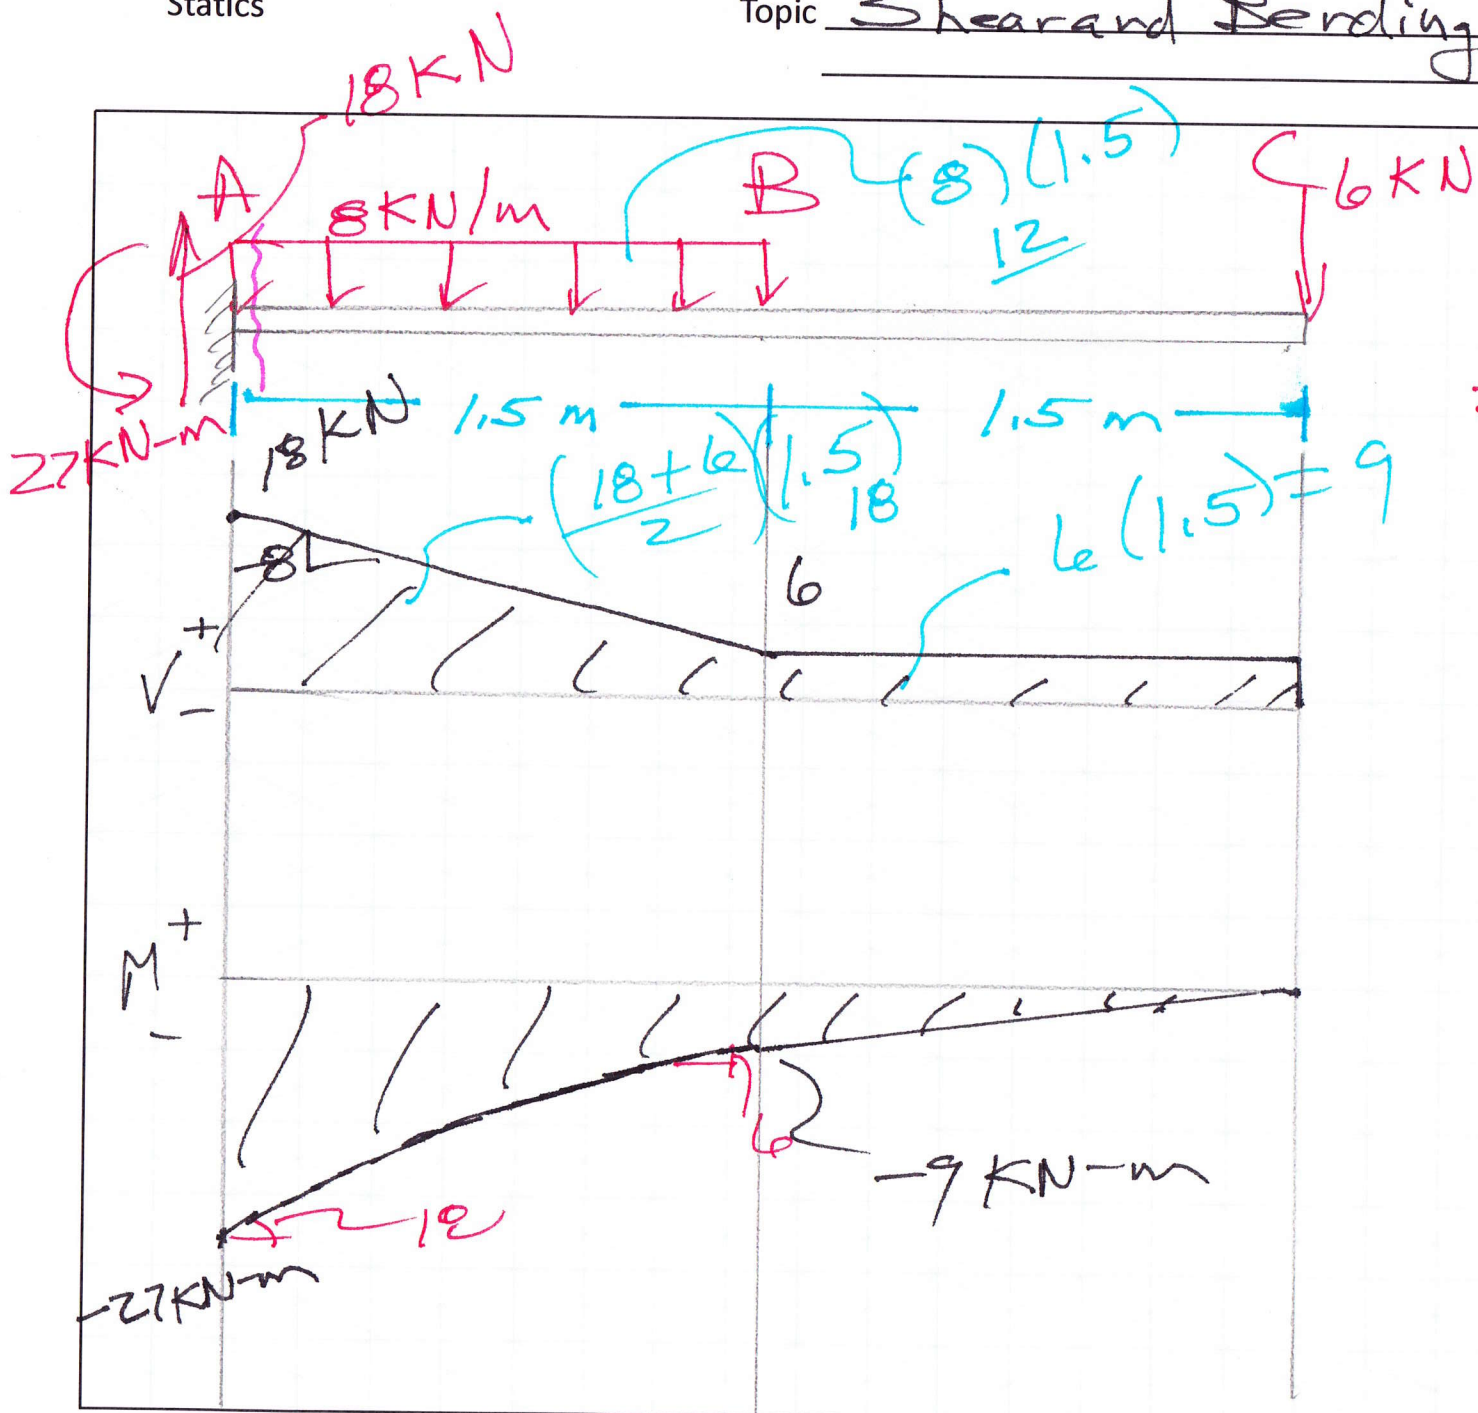 Statics
Topic Shear and Bending
18KN
A
8KN/m
B
(8)(1.5)
12
C
6KN
27KN-m
1.5 m
1.5 m
18KN
(18+6/2)(1.5)
18
6(1.5)=9
-8
6
V
+
-
M
+
-
6
-9 KN-m
18
-27KN-m